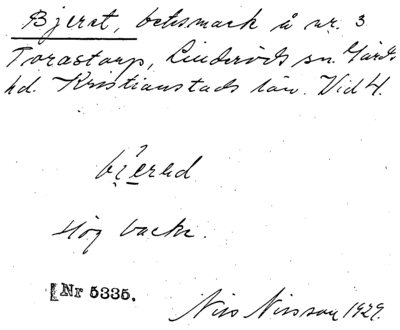 Bjerät, betsmark å nr. 3
Torastorp, Linderöds sn. Gärds
hd. Kristianstads län. Vid 4.
bįered
Hög backe.
[Nr 5335.
Nils Nilsson 1929.